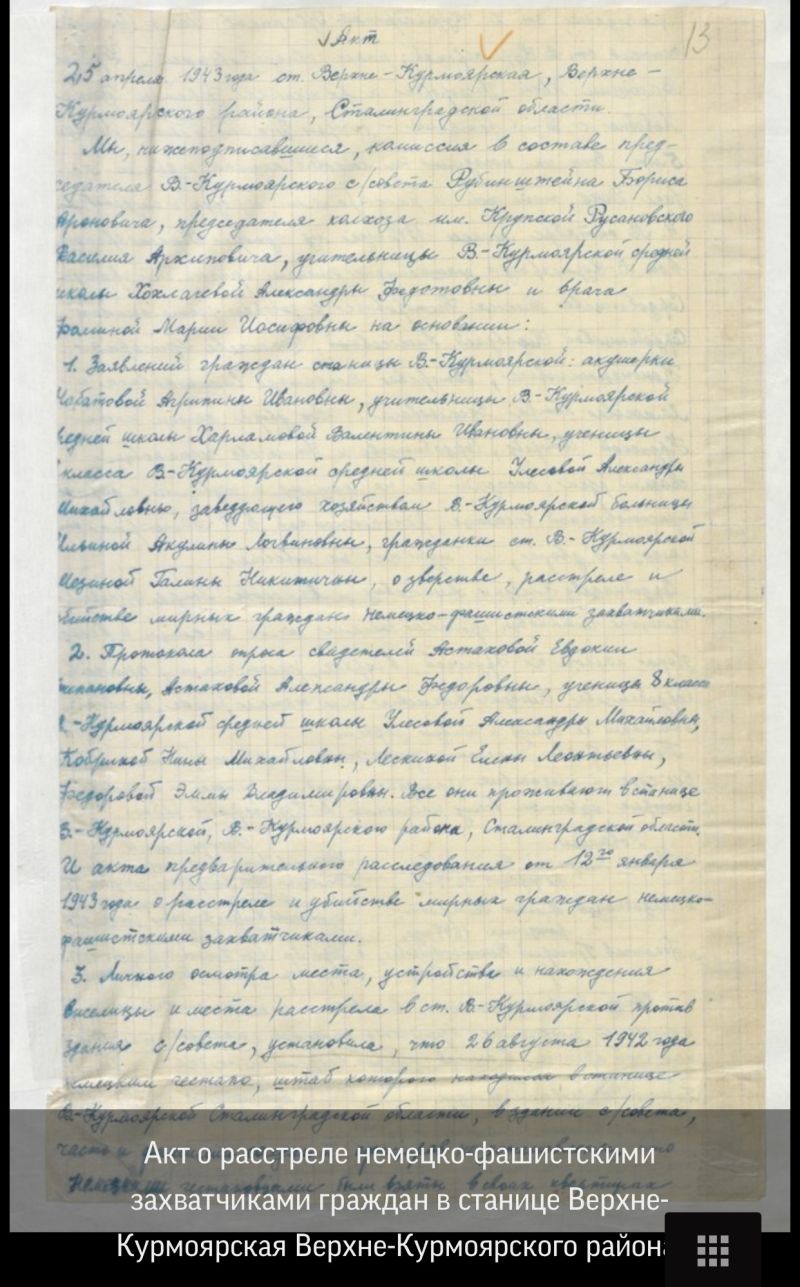 Акт
13
25 апреля 1943 года ст. Верхне-Курмоярская, Верхне-
Курмоярского района, Сталинградской области.
Мы, нижеподписавшиеся, комиссия в составе пред-
седателя В-Курмоярского с/совета Рубинштейна Бориса
Ароновича, председателя колхоза им. Крупской Русановского
Василия Архиповича, учительницы В.-Курмоярской средней
школы Хохлачевой Александры Федотовны и врача
Фоминой Марии Иосифовны на основании:
1. Заявлений граждан станицы В.-Курмоярской: акушерки
Агрипины Ивановны, учительницы В-Курмоярской
средней школы Харламовой Валентины Ивановны, ученицы
класса В-Курмоярской средней школы Улесовой Александры
Михайловны, заведующего хозяйством В-Курмоярской больницы
Ильиной Акулины Логвиновны, гражданки ст. В.-Курмоярской
Галины Никитичны, о зверстве, расстреле и
убийстве мирных граждан немецко-фашистскими захватчиками.
2. Протокола опроса свидетелей Астаховой Евдокии
Степановны, Астаховой Александры Федоровны, ученицы 8 класса
В.-Курмоярской средней школы Улесовой Александры Михайловны,
Нины Михайловны, Елены Леонтьевны,
Федоровой Эммы Владимировны. Все они проживают в станице
В.-Курмоярской, В.-Курмоярского района, Сталинградской области.
И акта предварительного расследования от 12го января
1943 года о расстреле и убийстве мирных граждан немецко-
фашистскими захватчиками.
3. Личного осмотра места, устройства и нахождения
виселицы и места расстрела в ст. В.-Курмоярской против
здания с/совета, установила, что 26 августа 1942 года
немецким гестапо, штаб которого находился в станице
В-Курмоярской Сталинградской области, в здании с/совета,
были взяты в своих квартирах
Акт о расстреле немецко-фашистскими
захватчиками граждан в станице Верхне-
Курмоярская Верхне-Курмоярского района